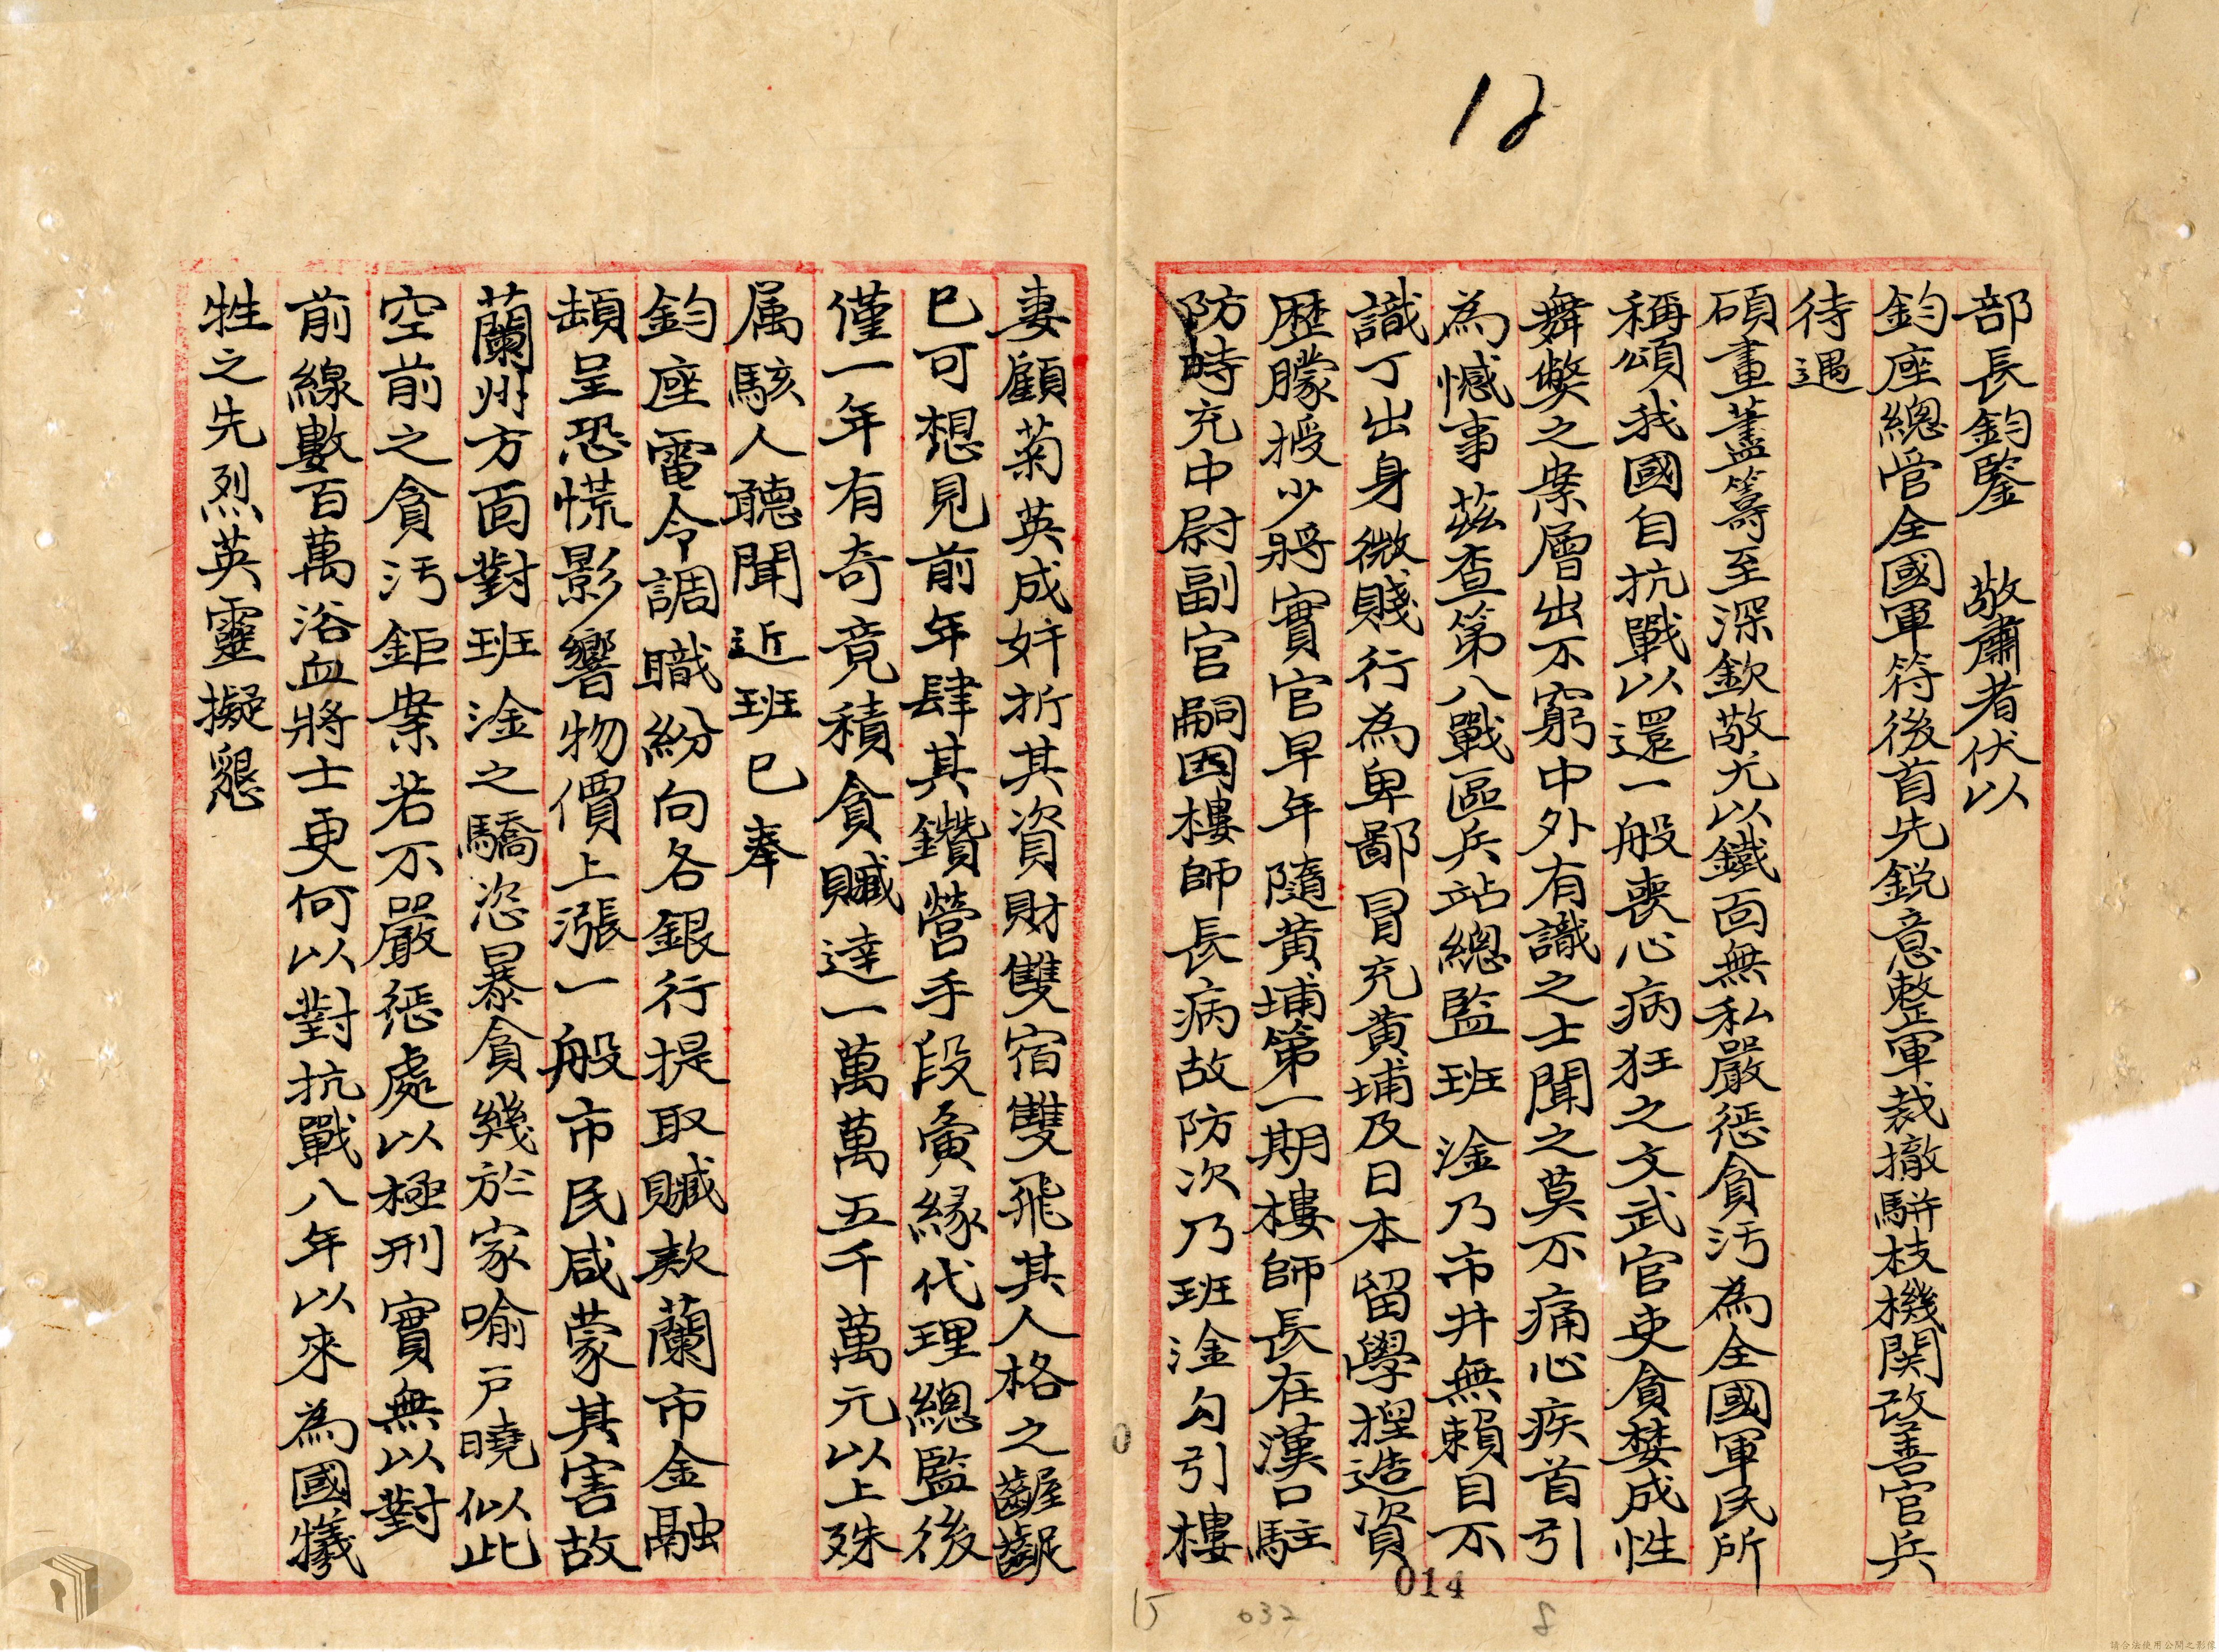 12
部長鈞鑒　敬肅者伏以
鈞座總管全國軍符後首先銳意整軍裁撤駢枝機関改善官兵
待遇
碩畫藎籌至深欽敬尤以鐵面無私嚴惩貪污為全國軍民所
稱頌我國自抗戰以還一般喪心病狂之文武官吏貪婪成性
舞獘之案層出不窮中外有識之士聞之莫不痛心疾首引
為憾事茲查第八戰區兵站總監班淦乃市井無賴目不
識丁出身微賤行為卑鄙冒充黃埔及日本留學捏造資
歷矇授少將實官早年隨黃埔第一期樓師長在漢口駐
防時充中尉副官嗣因樓師長病故防次乃班淦勾引樓
妻顧菊英成奸折其資財雙宿雙飛其人格之齷齪
已可想見前年肆其鑽營手段夤緣代理總監後
僅一年有奇竟積貪贓達一萬萬五千萬元以上殊
属駭人聽聞近班已奉
鈞座電令調職紛向各銀行提取贓款蘭市金融
頓呈恐慌影響物價上漲一般市民咸蒙其害故
蘭州方面對班淦之驕恣暴貪幾於家喻戶曉似此
空前之貪污鉅案若不嚴惩處以極刑實無以對
前線數百萬浴血將士更何以對抗戰八年以來為國犧
牲之先烈英靈擬懇
014
0
15
032
8
請合法使用公開之影像